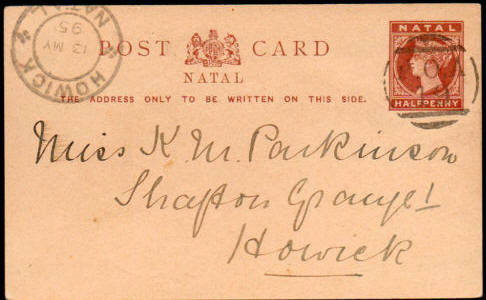 HOWICK
NATAL
13 MY
95
POST CARD
NATAL
THE ADDRESS ONLY TO BE WRITTEN ON THIS SIDE.
NATAL
HALFPENNY
Miss K. M. Parkinson
Shafton Grange
Howick